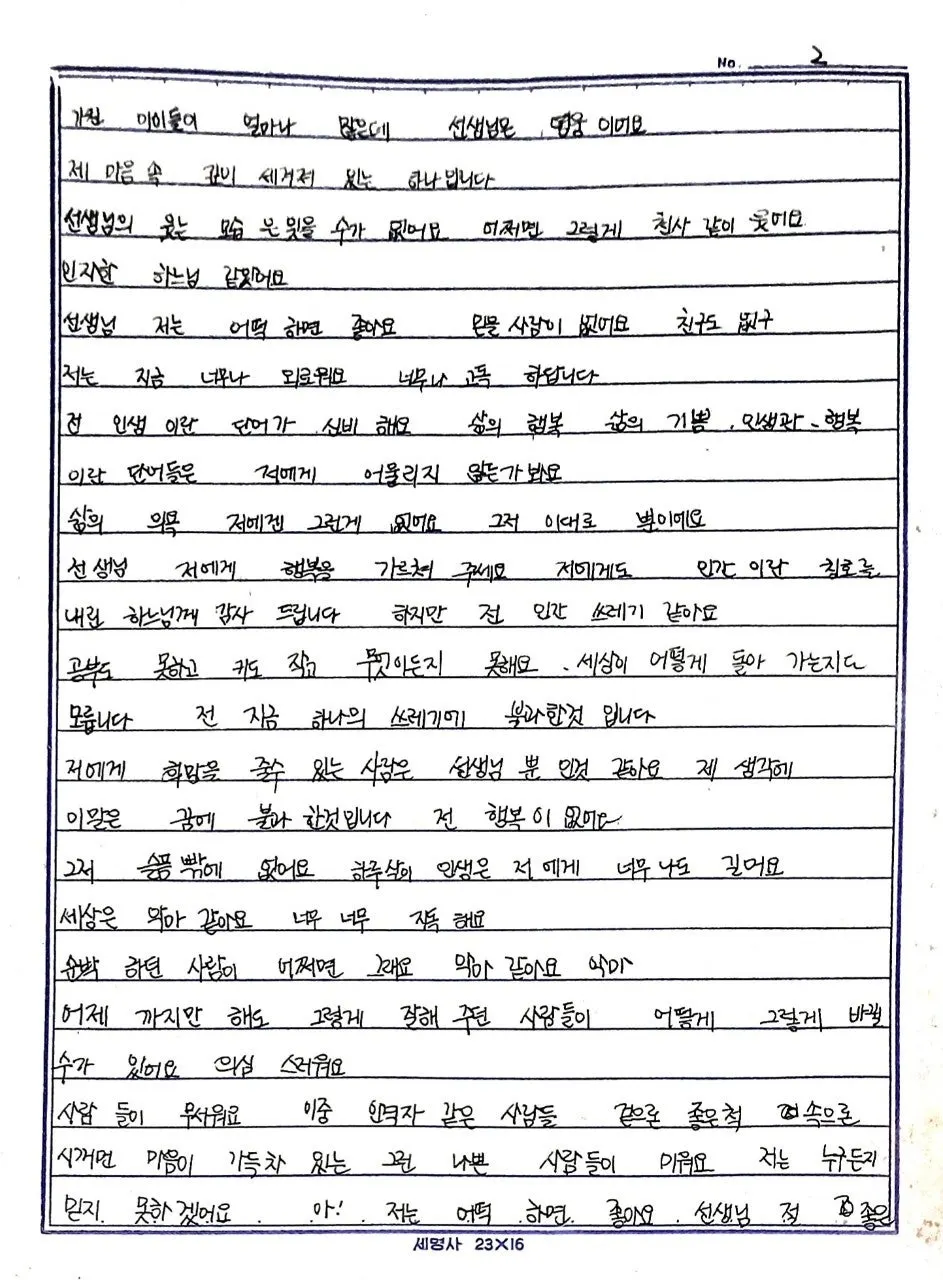 No. 2
가진 아이들이 얼마나 많은데 선생님은 영웅 이에요
제 마음 속 깊이 새겨져 있는 하나입니다
선생님의 웃는 모습 은 잊을 수가 없어요 어쩌면 그렇게 천사 같이 웃어요
인자한 하느님 같았어요
선생님 저는 어떡 하면 좋아요 믿을 사람이 없어요 친구도 없구
저는 지금 너무나 외로워요 너무나 고독 하답니다
전 인생 이란 단어가 신비 해요 삶의 행복 삶의 기쁨. 인생관. 행복
이란 단어들은 저에게 어울리지 않는가봐요
삶의 의욕 저에겐 그런게 없어요 그저 이대로 뿐이에요
선생님 저에게 행복을 가르쳐 주세요 저에게도 인간 이란 칭호를
내린 하느님께 감사 드립니다 하지만 전 인간 쓰레기 같아요
공부도 못하고 키도 작고 무엇이든지 못해요. 세상이 어떻게 돌아 가는지도
모릅니다 전 지금 하나의 쓰레기에 불과한것 입니다
저에게 희망을 줄수 있는 사람은 선생님 뿐 인것 같아요 제 생각에
이말은 꿈에 불과 한것입니다 전 행복이 없어요
그저 슬픔 밖에 없어요 하루살이 인생은 저 에게 너무 나도 길어요
세상은 악마 같아요 너무 너무 지독 해요
순박 하던 사람이 어쩌면 그래요 악마 같아요 악마
어제 까지만 해도 그렇게 잘해 주던 사람들이 어떻게 그렇게 바뀔
수가 있어요 의심 스러워요
사람 들이 무서워요 이중 인격자 같은 사람들 겉으론 좋은척 속으론
시꺼면 마음이 가득차 있는 그런 나쁜 사람들이 미워요 저는 누구든지
믿지. 못하겠어요. 아! 저는 어떡 하면. 좋아요. 선생님 전 좋은
세명사 23X16